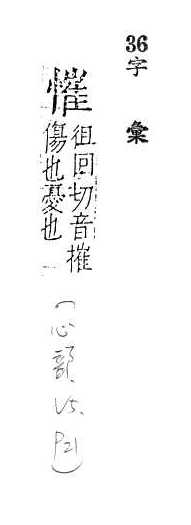 36
字彙
慛
徂回切音摧
傷也憂也
(心部, V5, P21)